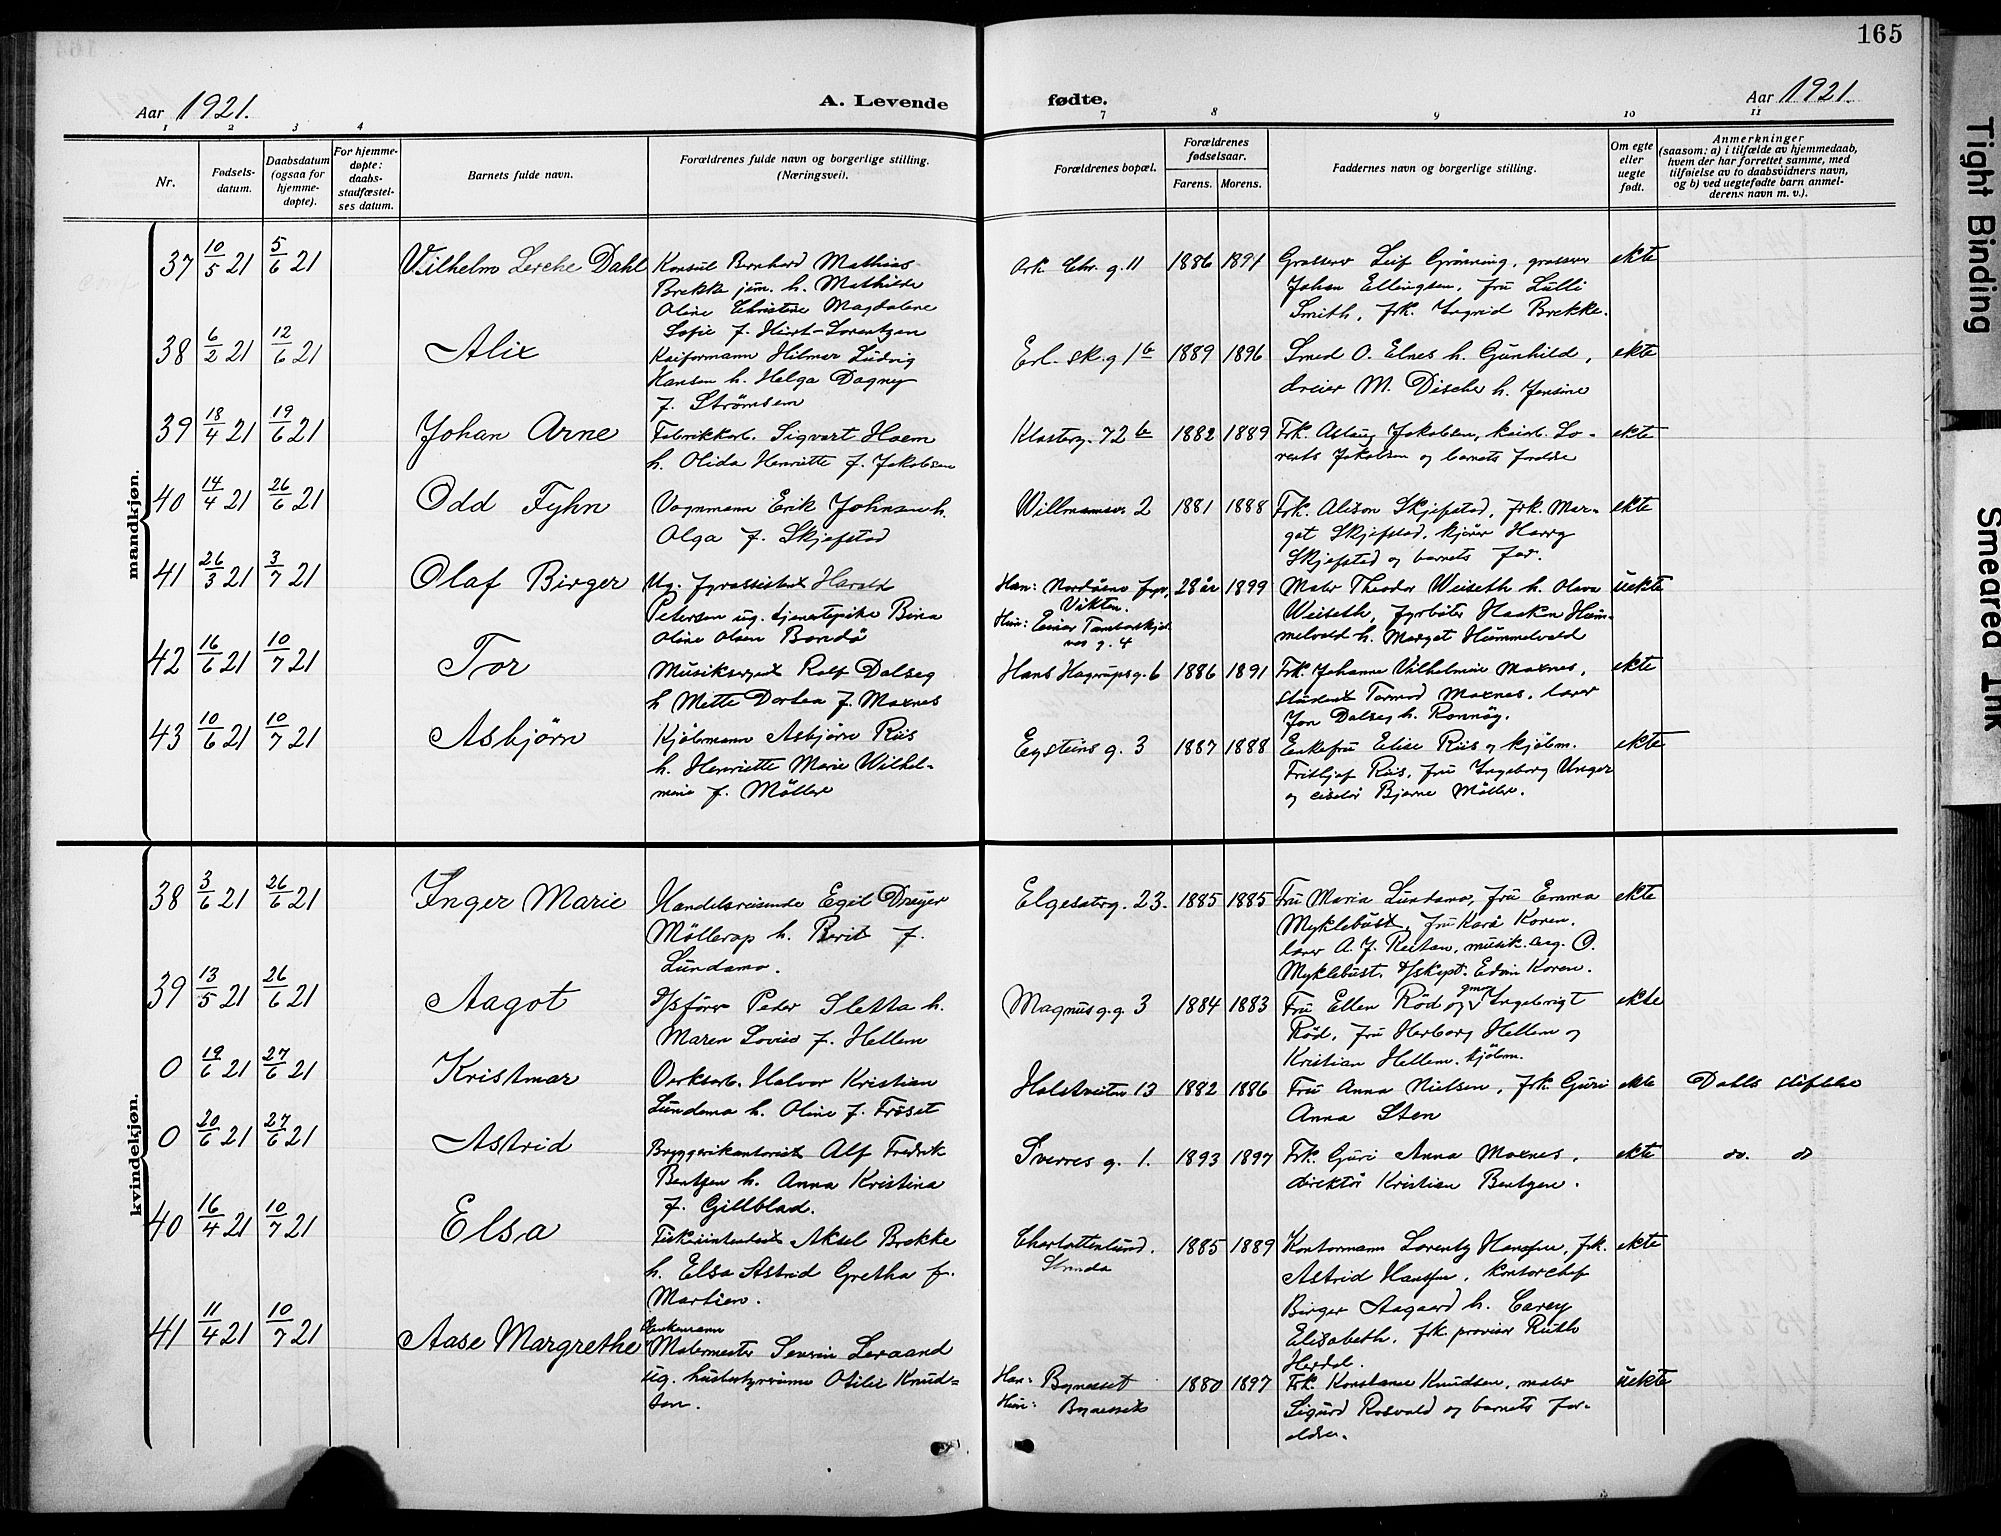 165
Aar 1921.
A. Levende fødte.
Aar 1921.
1 2 3 4 7 8 9 10 11
Nr.
Fødsels-
datum.
Daabsdatum
(ogsaa for
hjemme-
døpte).
For hjemme-
døpte:
daabs-
stadfæstel-
ses datum.
Barnets fulde navn.
Forældrenes fulde navn og borgerlige stilling.
(Næringsvei).
Forældrenes bopæl.
Forældrenes
fødselsaar.
Farens. Morens.
Faddernes navn og borgerlige stilling.
Om egte
eller
uegte
født.
Anmerkninger
(saasom: a) i tilfælde av hjemmedaab,
hvem der har forrettet samme, med
tilføielse av to daabsvidners navn,
og b) ved uegtefødte barn anmel-
derens navn m. v.).
mandkjøn.
37 10/5 21 5/6 21 Vilhelm Lerche Dahl
Konsul Bernhard Mathias
Brekke jun. h. Mathilde
Oline Christine Magdalene
Sofie f. Hiort-Lorentzen
Ark. Chr. g. 11 1886 1891
Grosserer Leif Grønning, grosserer
Johan Ellingsen, fru Lulli
Smith, frk. Ingrid Brekke.
ekte
38 6/2 21 12/6 21 Alix
Kaiformann Hilmar Ludvig
Hansen h. Helga Dagny
f. Strømsem
Erl. sk. g 1b 1889 1896
Smed O. Elnes h. Gunhild,
dreier M. Dische h. Jensine
ekte
39 18/4 21 19/6 21 Johan Arne
Fabrikkarb. Sigvart Hoem
h. Olida Henriette f. Jakobsen
Klosterg. 72b 1882 1889
Frk. Aslaug Jakobsen, kaiarb. Lo-
rents Jakobsen og barnets foreldre
ekte
40 14/4 21 26/6 21 Odd Fyhn
Vognmann Erik Johnsen h.
Olga f. Skjefstad
Willmannsv. 2 1881 1888
Frk. Alison Skjefstad, frk. Mar-
got Skjefstad, kjører Harry
Skjefstad og barnets far.
ekte
41 26/3 21 3/7 21 Olaf Birger
Ug. fyrassistent Harald
Petersen ug. tjenestepike Bina
Oline Olsen Bondø
Han: Nordøens fyr,
Vikten.
Hun: Einar Tambarskjel-
ves g. 4
28 år 1899
Maler Theodor Weiseth h. Olava
Weiseth, fyrbøter Haakon Hum-
melvold h. Margot Hummelvold
uekte
42 16/6 21 10/7 21 Tor
Musikserjent Rolf Dalseg
h Mette Dortea f. Moxnes
Hans Hagerupsg. 6 1886 1891
Frk. Johanne Vilhelmine Moxnes,
student Tormod Moxnes, lærer
Jon Dalseg h. Ronnøg.
ekte
43 10/6 21 10/7 21 Asbjørn
Kjøbmann Asbjørn Riis
h. Henriette Marie Wilhel-
mine f. Møller
Eysteins g. 3 1887 1888
Enkefru Elise Riis og kjøbm.
Fritljof Riis, fru Ingeborg Unger
og ciselør Bjarne Møller.
ekte
kvindekjøn.
38 3/6 21 26/6 21 Inger Marie
Handelsreisende Egil Dreyer
Møllerop h. Berit f.
Lundamo.
Elgesæterg. 23. 1885 1885
Fru Maria Lundamo, fru Emma
Myklebust, fru Kara Koren,
lærer A. J. Reitan, musik. serg. O.
Myklebust. D/skept. Edvin Koren.
ekte
39 13/5 21 26/6 21 Aagot
D/sfører Peder Sletta h.
Maren Lovise f. Hellem
Magnus g. g. 3 1884 1883
Fru Ellen Rød og gmr. Ingebrigt
Rød, fru Herborg Hellem og
Kristian Hellem. kjøbm.
ekte
0 19/6 21 27/6 21 Kristmar
Verksarb. Halvor Kristian
Lundemo h. Oline f. Frøset
Holstveiten 13 1882 1886
Fru Anna Nielsen, frk. Guri
Anna Sten
ekte Dahls stiftelse
0 20/6 21 27/6 21 Astrid
Bryggerikontorist Alf Fredrik
Bentzen h. Anna Kristina
f. Gillblad.
Sverres g. 1. 1893 1897
Frk. Guri Anna Moxnes,
direktør Kristian Bentzen.
ekte do. do
40 16/4 21 10/7 21 Elsa
Fiskeriintendent Aksel Brekke
h. Elsa Astrid Gretha f.
Martiens.
Charlottenlund,
Strinda
1885 1889
Kontormann Lorentz Hansen, frk.
Astrid Hansen, kontorchef
Birger Aagaard h. Carey
Elisabeth, frk. provisor Ruth
Herdal.
ekte
41 11/4 21 10/7 21 Aase Margrethe
Enkemann
Malermester Severin Leraand
ug. husbestyrerinne Otilie Knud-
sen.
Han: Bynesset
Hun: Bynesset
1880 1897
Frk. Konstanse Knudsen, maler
Sigurd Rosvold og barnets for-
eldre.
uekte
Tight Binding
Smeared Ink